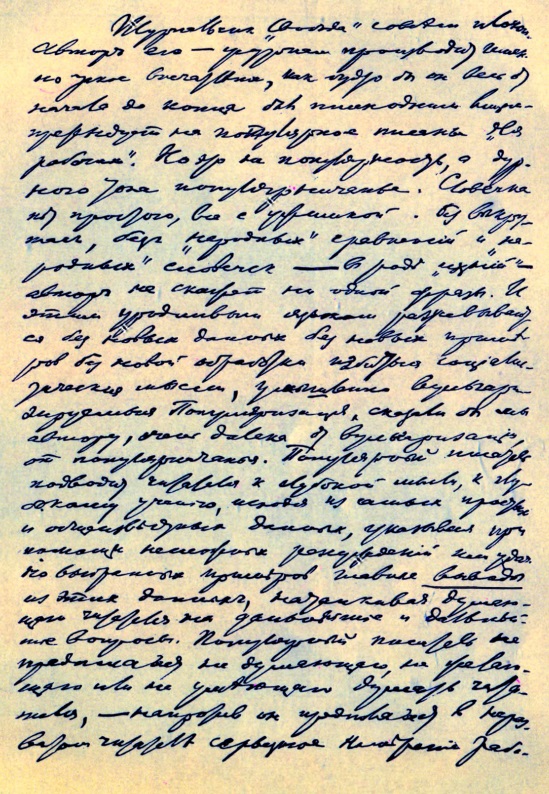 Журнальчик "Свобода" совсем плохой.
Автор его — журнал производит имен-
но такое впечатление, как будто бы он весь от
начала до конца был писан одним лицом —
претендует на популярное писанье "для
рабочих". Но это не популярность, а дур-
ного тона популярничанье. Словечка
нет простого, все с ужимкой. Без выкру-
тас, без "народных" сравнений и "на-
родных" словечек — вроде "ихний" —
автор не скажет ни одной фразы. И
этим уродливым языком разжевывают-
ся без новых данных без новых приме-
ров без новой обработки избитые социали-
стические мысли, умышленно вульгари-
зируемые. Популяризация, сказали бы мы
автору, очень далека от вульгаризации,
от популярничанья. Популярный писатель
подводит читателя к глубокой мысли, к глу-
бокому учению, исходя из самых простых
и общеизвестных данных, указывая при
помощи несложных рассуждений или удач-
но выбранных примеров главные выводы
из этих данных, наталкивая думаю-
щего читателя на дальнейшие и дальней-
шие вопросы. Популярный писатель не
предполагает не думающего, не желаю-
щего или не умеющего думать чита-
теля, — напротив он предполагает в нераз-
витом читателе серьезное намерение рабо-